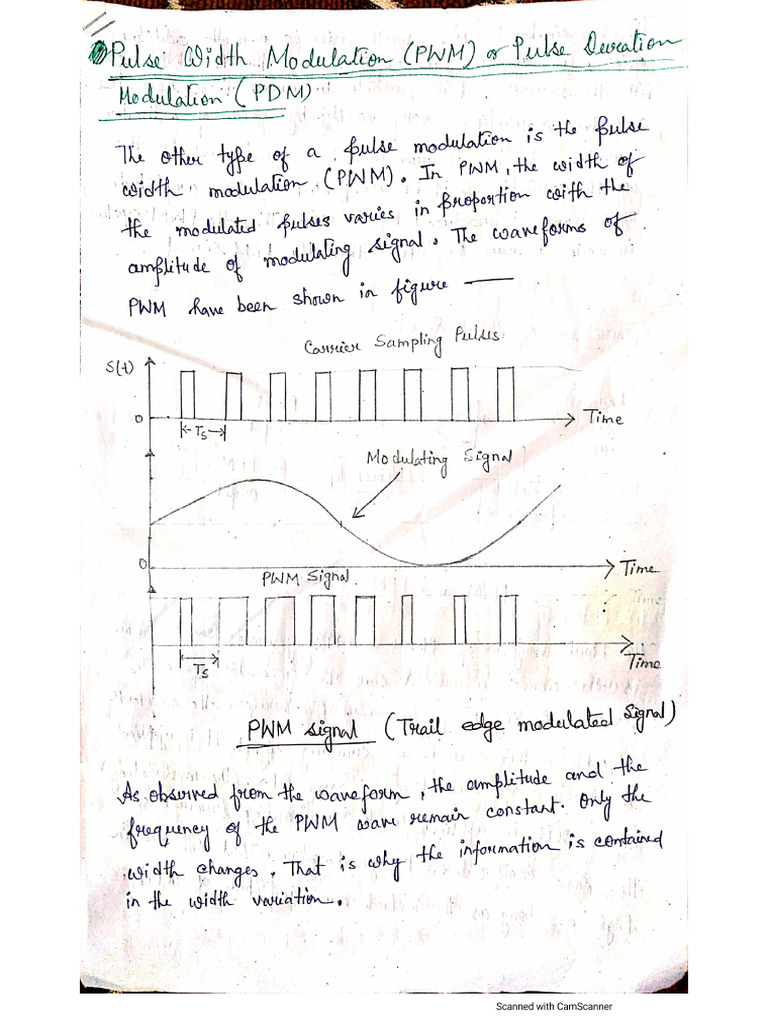 Pulse Width Modulation (PWM) or Pulse Duration
Modulation (PDM)
The other type of a pulse modulation is the pulse
width modulation (PWM). In PWM, the width of
the modulated pulses varies in proportion with the
amplitude of modulating signal. The waveforms of
PWM have been shown in figure —
Carrier Sampling Pulses
S(t)
0
Time
Ts
Modulating Signal
0
Time
PWM Signal
Ts
Time
PWM signal (Trail edge modulated Signal)
As observed from the waveform, the amplitude and the
frequency of the PWM wave remain constant. Only the
width changes. That is why the information is contained
in the width variation.
Scanned with CamScanner